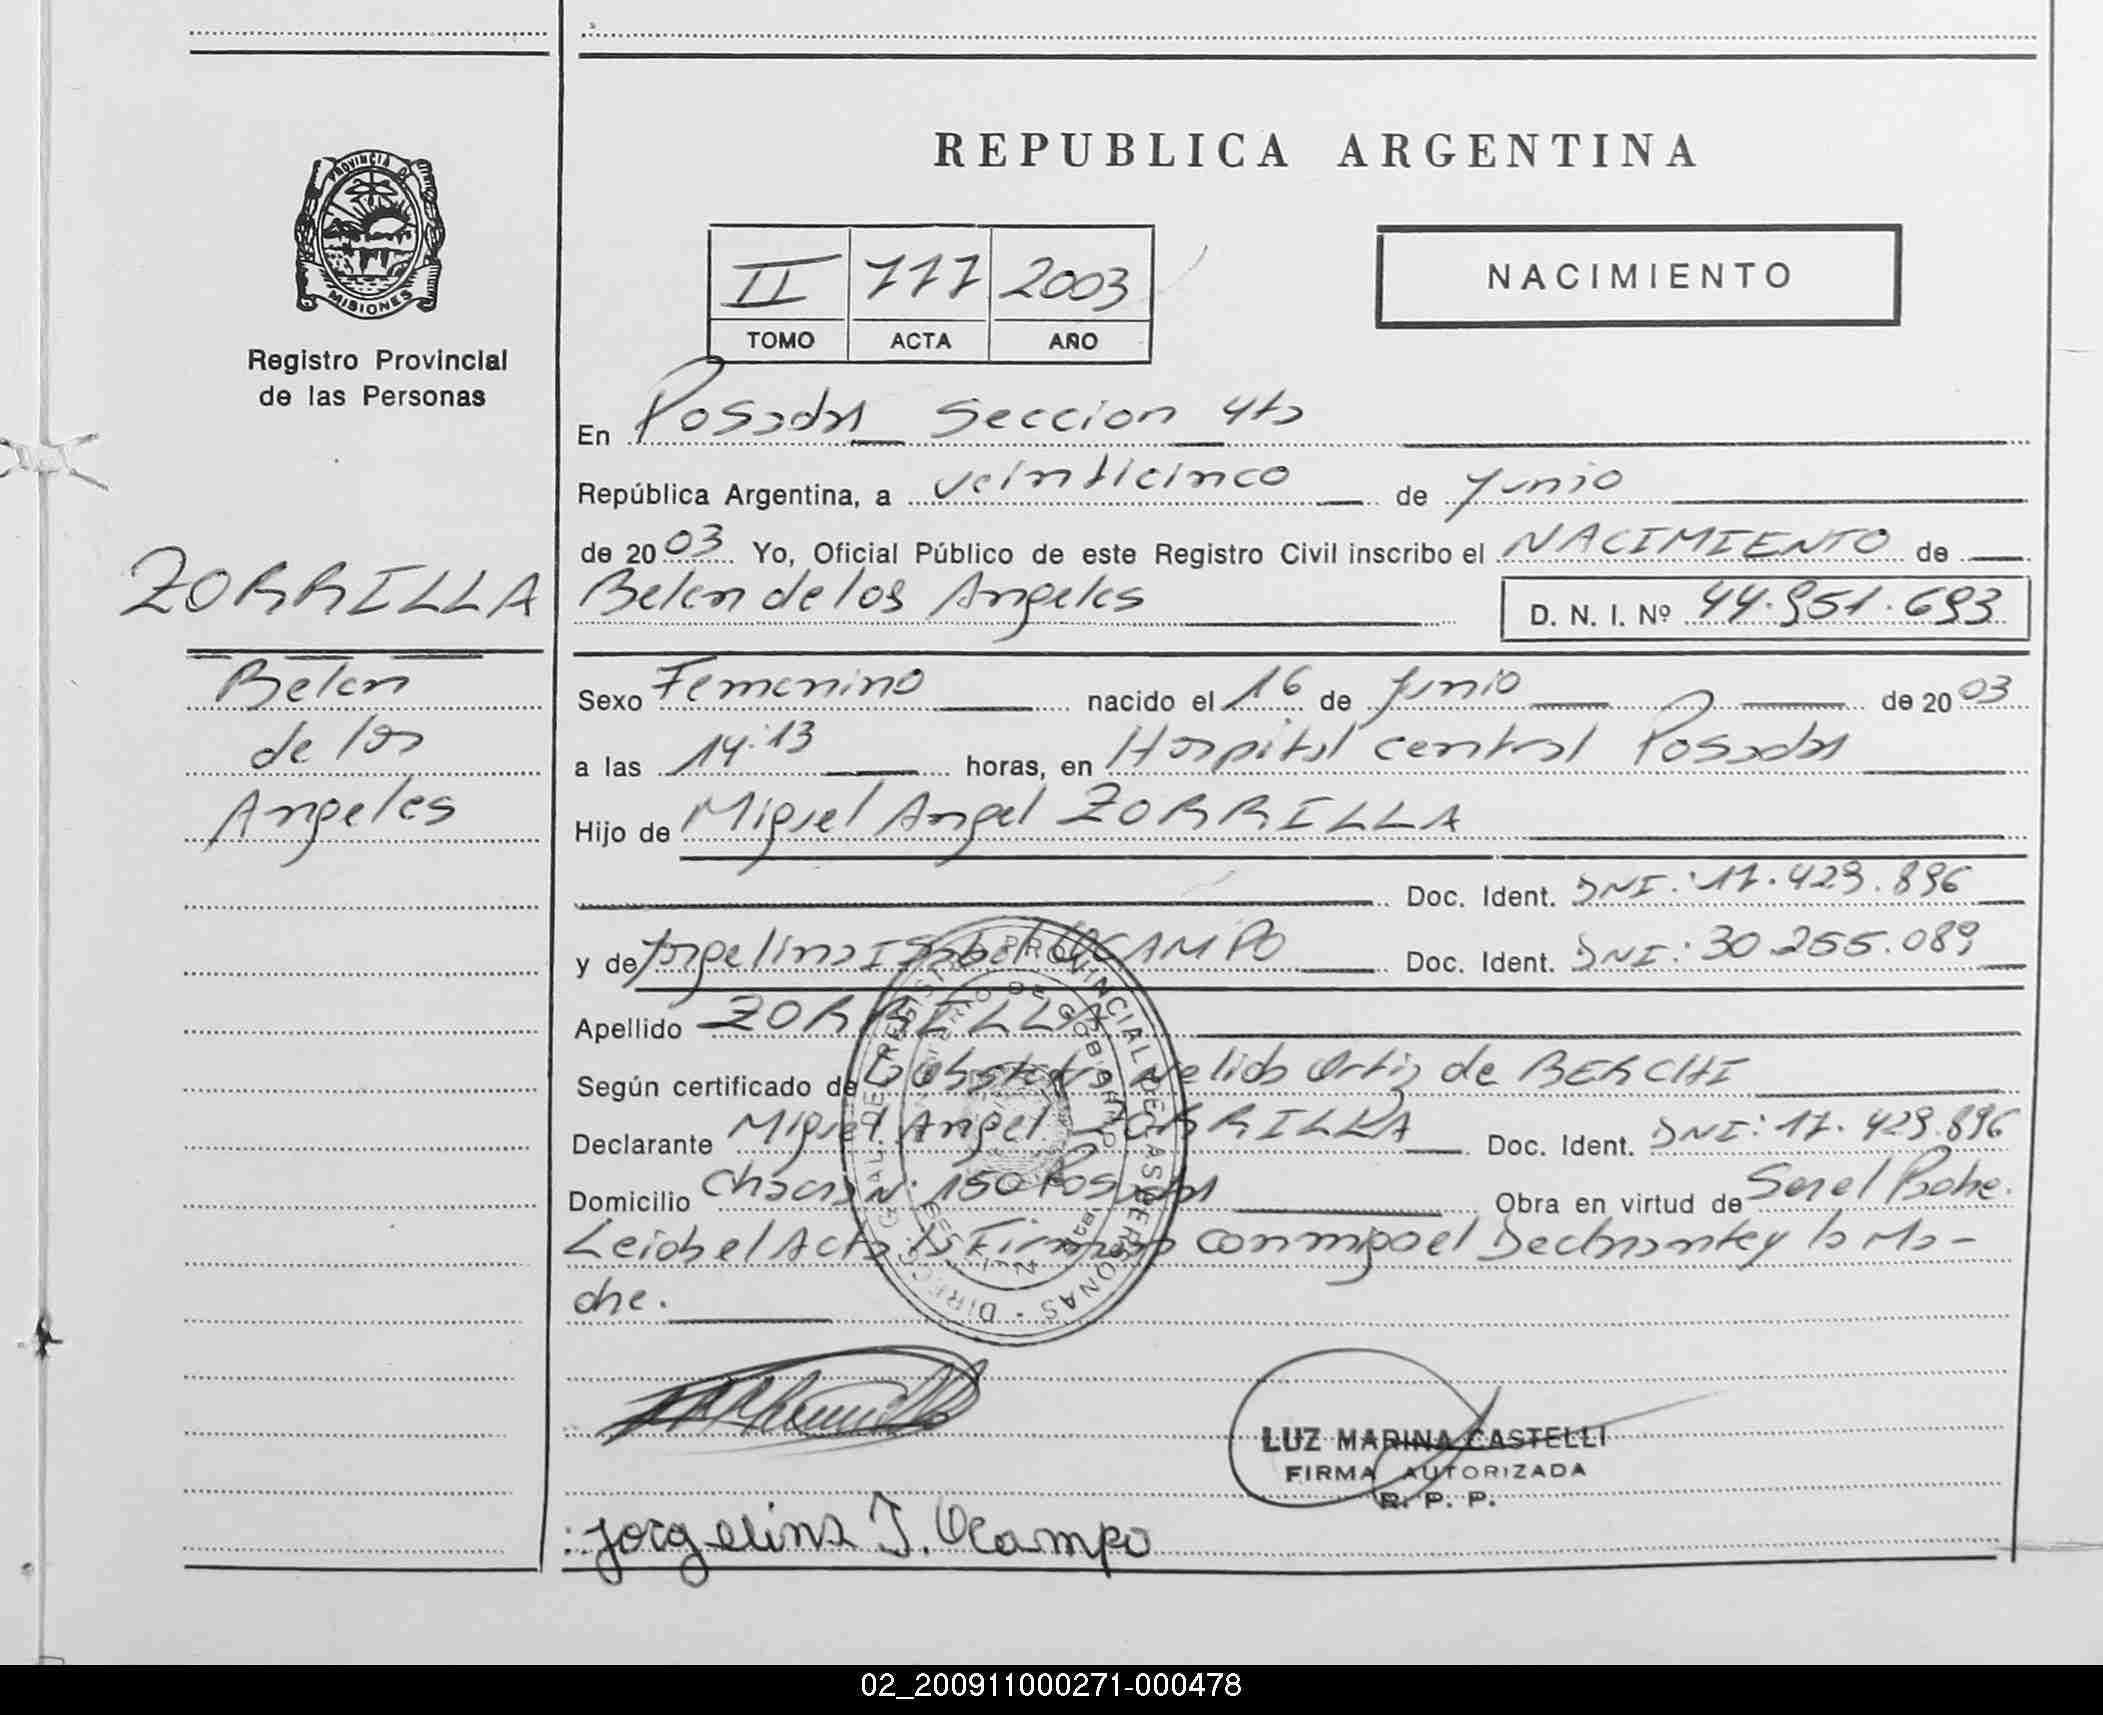 PROVINCIA DE
MISIONES
Registro Provincial
de las Personas
ZORRILLA
Belen
de los
Angeles
REPUBLICA ARGENTINA
II 777 2003
TOMO ACTA AÑO
NACIMIENTO
En Posadas Seccion 4ta
República Argentina, a veinticinco de Junio
de 2003 Yo, Oficial Público de este Registro Civil inscribo el NACIMIENTO de
Belen de los Angeles D. N. I. Nº 44.951.693
Sexo Femenino nacido el 16 de Junio de 2003
a las 14:13 horas, en Hospital central Posadas
Hijo de Miguel Angel ZORRILLA
Doc. Ident. DNI: 17.429.896
y de Jorgelina Isabel OCAMPO Doc. Ident. DNI: 30.255.089
Apellido ZORRILLA
Según certificado de Obstetra Nelida Ortiz de BERCHI
Declarante Miguel Angel ZORRILLA Doc. Ident. DNI: 17.429.896
Domicilio N° 150 Posadas Obra en virtud de Ser el Padre.
Leida el Acta la Firman conmigo el Declarante y la Ma-
dre.
DIREC. GRAL. DE REGISTRO PROVINCIAL DE LAS PERSONAS
MINISTERIO DE GOBIERNO
LUZ MARINA CASTELLI
FIRMA AUTORIZADA
R. P. P.
Jorgelina I. Ocampo
02_200911000271-000478